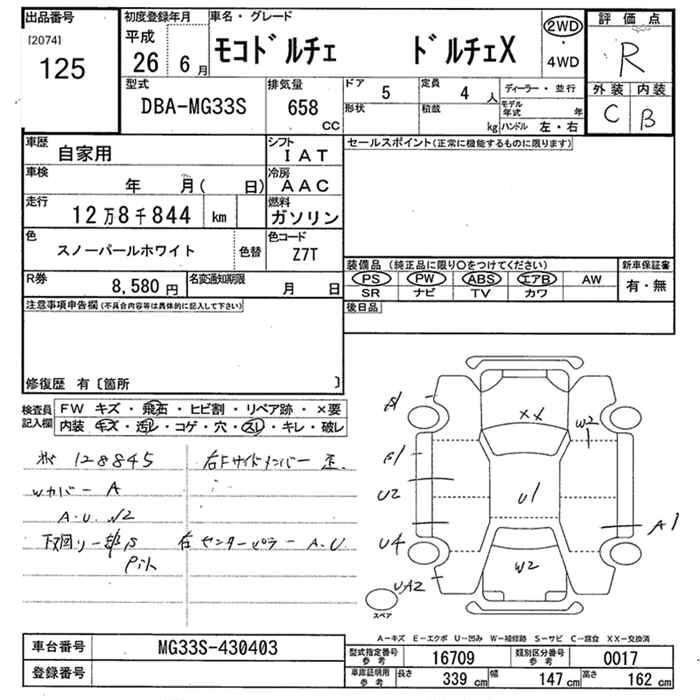 出品番号
[2074]
125
初度登録年月
平成
26 6月
車名・グレード
モコドルチェ ドルチェX
2WD
・
4WD
評価点
R
外装 内装
C B
型式
DBA-MG33S
排気量
658
CC
ドア 5
定員 4 人
形状
積載
kg
ディーラー・並行
モデル年式 年
ハンドル 左・右
車歴
自家用
シフト
IAT
車検
年 月( 日)
冷房
AAC
走行
12万8千844 km
燃料
ガソリン
色
スノーパールホワイト
色替
色コード
Z7T
R券
8,580円
名変通知期限
月 日
セールスポイント(正常に機能するものに限ります)
装備品(純正品に限り○をつけてください)
PS PW ABS エアB AW
SR ナビ TV カワ
新車保証書
有・無
後日品
注意事項申告欄(不具合内容等は具体的に記入して下さい)
修復歴 有〔箇所 〕
検査員記入欄
FW キズ・飛石・ヒビ割・リペア跡・×要
内装・キズ・汚レ・コゲ・穴・スレ・キレ・破レ
128845 右Fサイドメンバー 歪
Wカバー A
A.U. √2
下回り一部S 右センターピラー A.U
Pit
A1
XX
W2
B1
U2
U1
A1
U4
W2
UA2
スペア
A-キズ E-エクボ U-凹み W-補修跡 S-サビ C-腐食 XX-交換済
車台番号
MG33S-430403
登録番号
型式指定番号参考 16709
類別区分番号参考 0017
車庫証明用参考 長さ 339 cm 幅 147 cm 高さ 162 cm